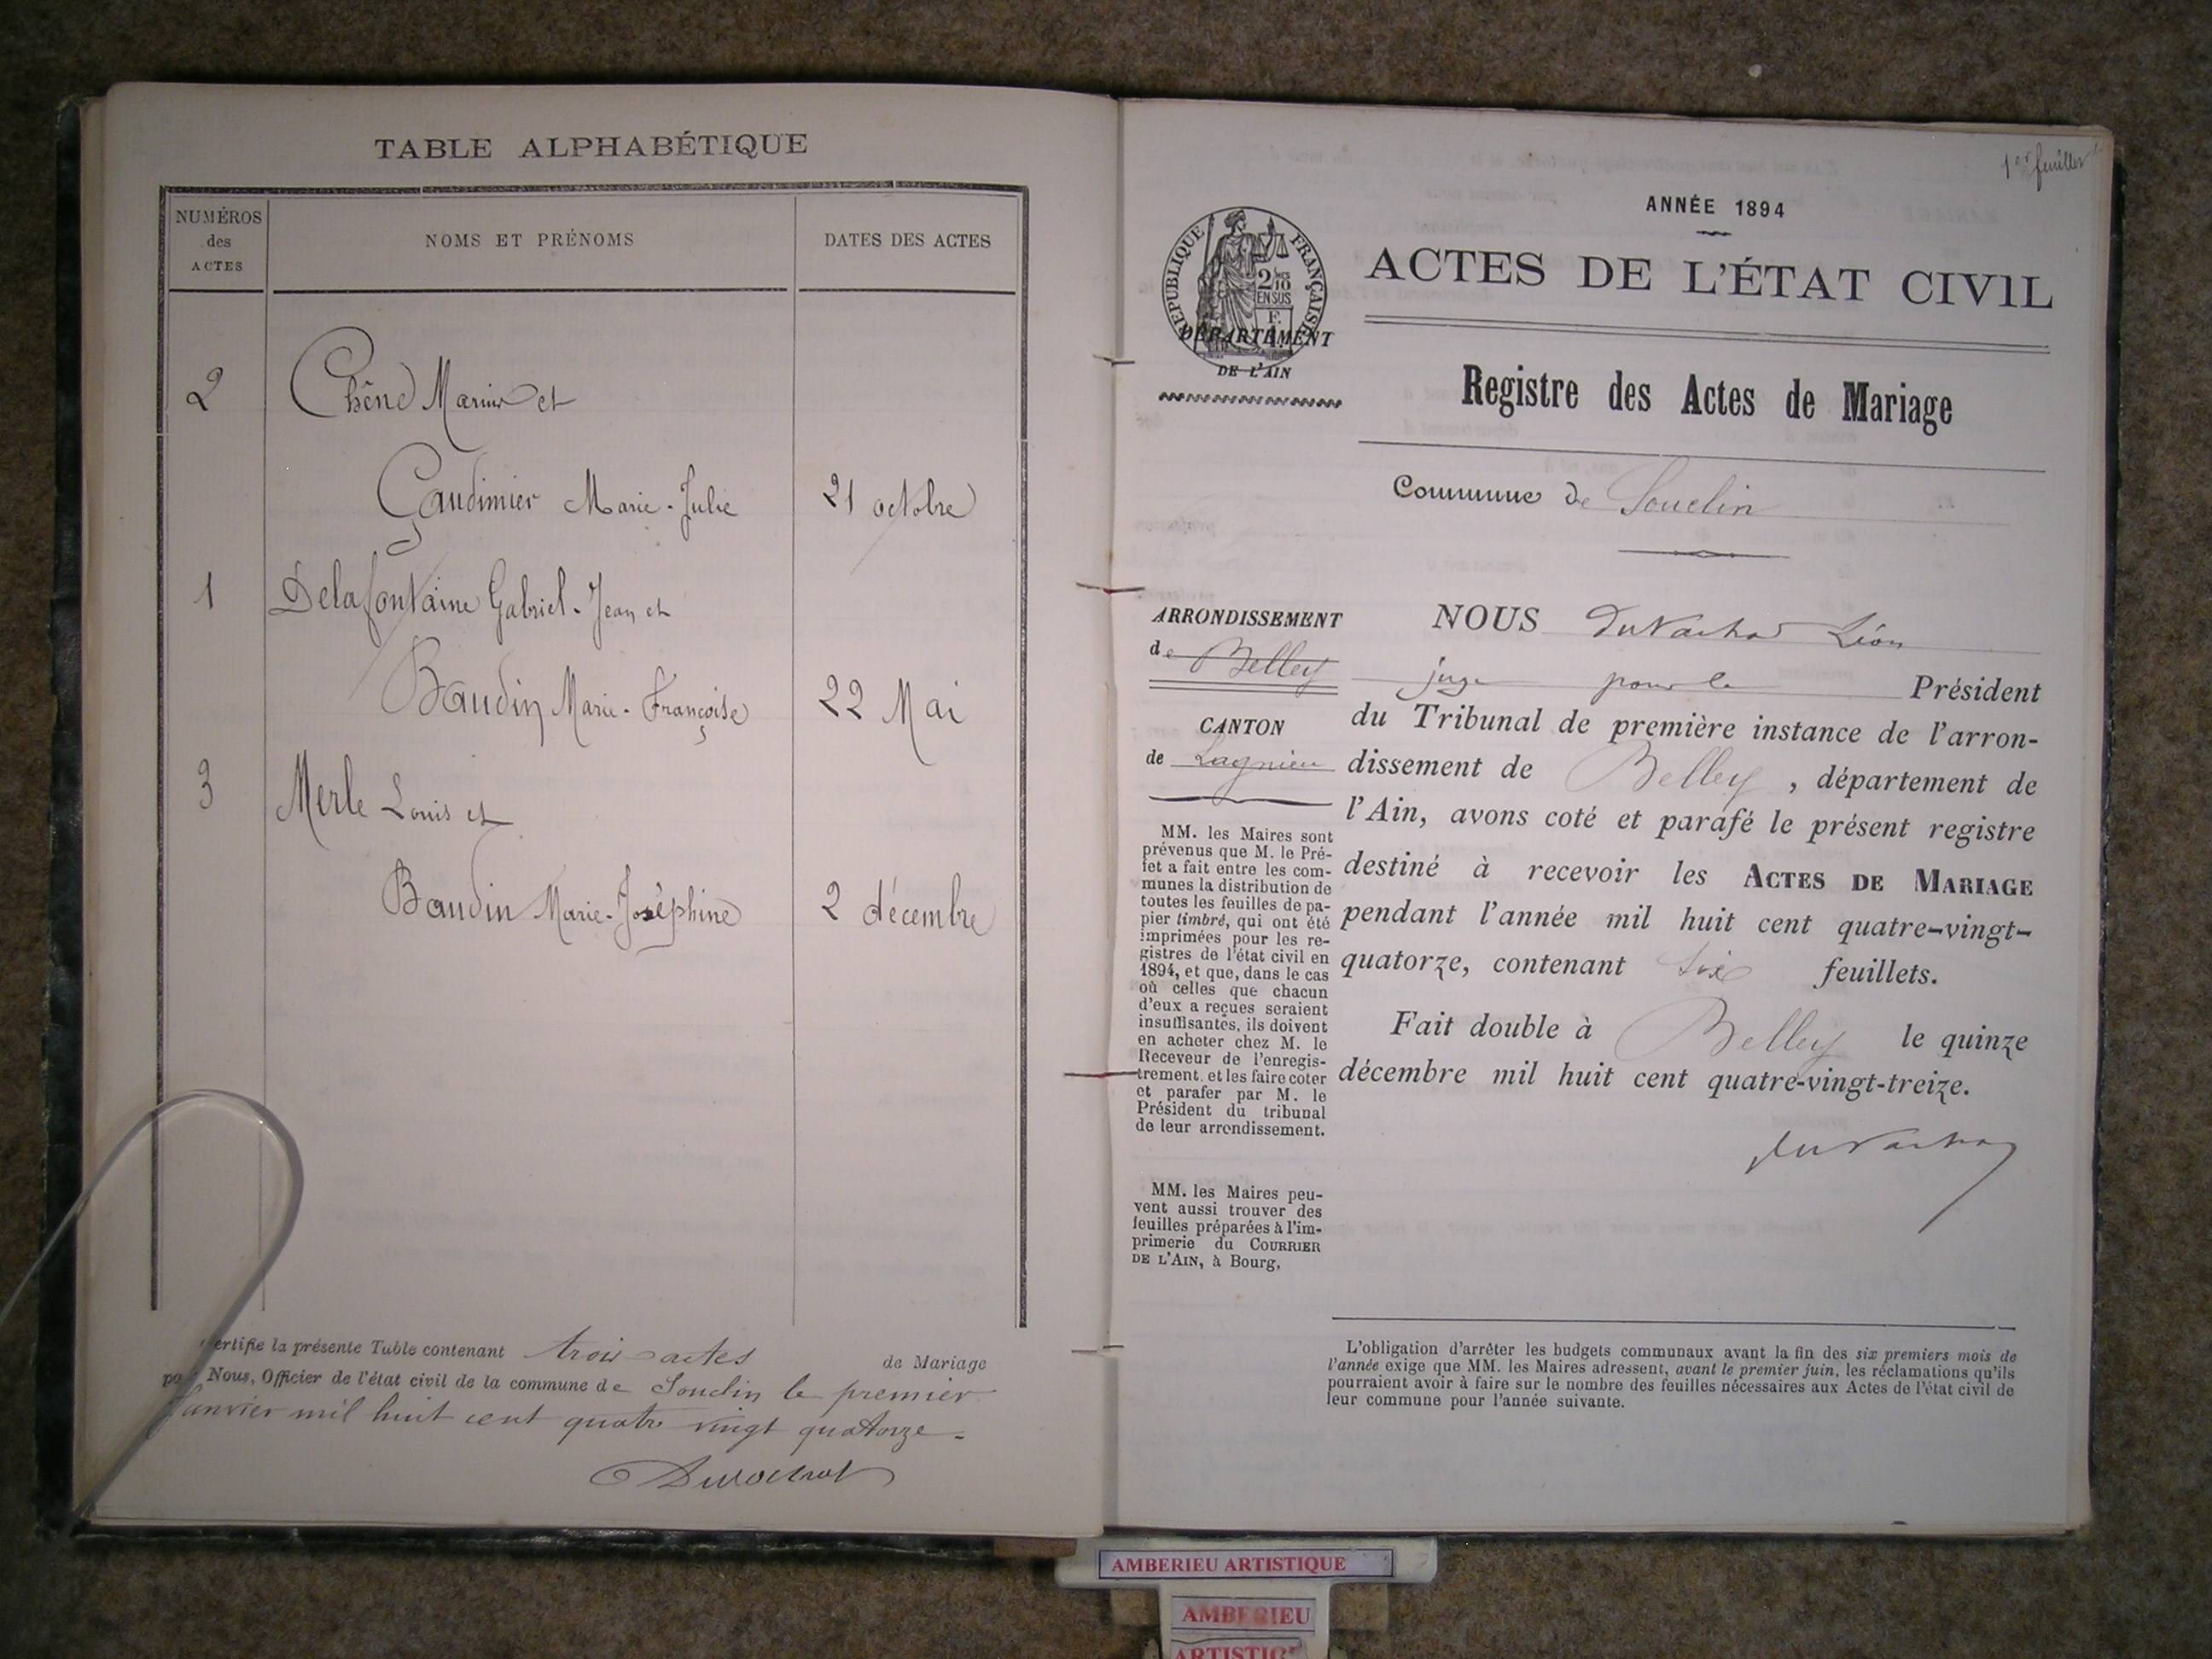 TABLE ALPHABÉTIQUE
NUMÉROS
des
ACTES
NOMS ET PRÉNOMS
DATES DES ACTES
2 Chêne Marius et
Gaudimier Marie-Julie 21 octobre
1 Delafontaine Gabriel-Jean et
Baudin Marie-Françoise 22 Mai
3 Merle Louis et
Baudin Marie-Joséphine 2 décembre
Certifie la présente Table contenant trois actes de Mariage
par Nous, Officier de l'état civil de la commune de Souclin le premier
Janvier mil huit cent quatre vingt quatorze.
1er feuillet
ANNÉE 1894
ACTES DE L'ÉTAT CIVIL
RÉPUBLIQUE FRANÇAISE
2/10
EN SUS
DÉPARTEMENT
DE L'AIN
Registre des Actes de Mariage
Commune de Souclin
ARRONDISSEMENT
de Belley
CANTON
de Lagnieu
MM. les Maires sont
prévenus que M. le Pré-
fet a fait entre les com-
munes la distribution de
toutes les feuilles de pa-
pier timbré, qui ont été
imprimées pour les re-
gistres de l'état civil en
1894, et que, dans le cas
où celles que chacun
d'eux a reçues seraient
insuffisantes, ils doivent
en acheter chez M. le
Receveur de l'enregis-
trement. et les faire coter
et parafer par M. le
Président du tribunal
de leur arrondissement.
MM. les Maires peu-
vent aussi trouver des
feuilles préparées à l'im-
primerie du COURRIER
DE L'AIN, à Bourg,
NOUS Léon
juge pour le Président
du Tribunal de première instance de l'arron-
dissement de Belley, département de
l'Ain, avons coté et parafé le présent registre
destiné à recevoir les ACTES DE MARIAGE
pendant l'année mil huit cent quatre-vingt-
quatorze, contenant six feuillets.
Fait double à Belley le quinze
décembre mil huit cent quatre-vingt-treize.
L'obligation d'arrêter les budgets communaux avant la fin des six premiers mois de
l'année exige que MM. les Maires adressent, avant le premier juin, les réclamations qu'ils
pourraient avoir à faire sur le nombre des feuilles nécessaires aux Actes de l'état civil de
leur commune pour l'année suivante.
AMBERIEU ARTISTIQUE
AMBERIEU
ARTISTIQUE